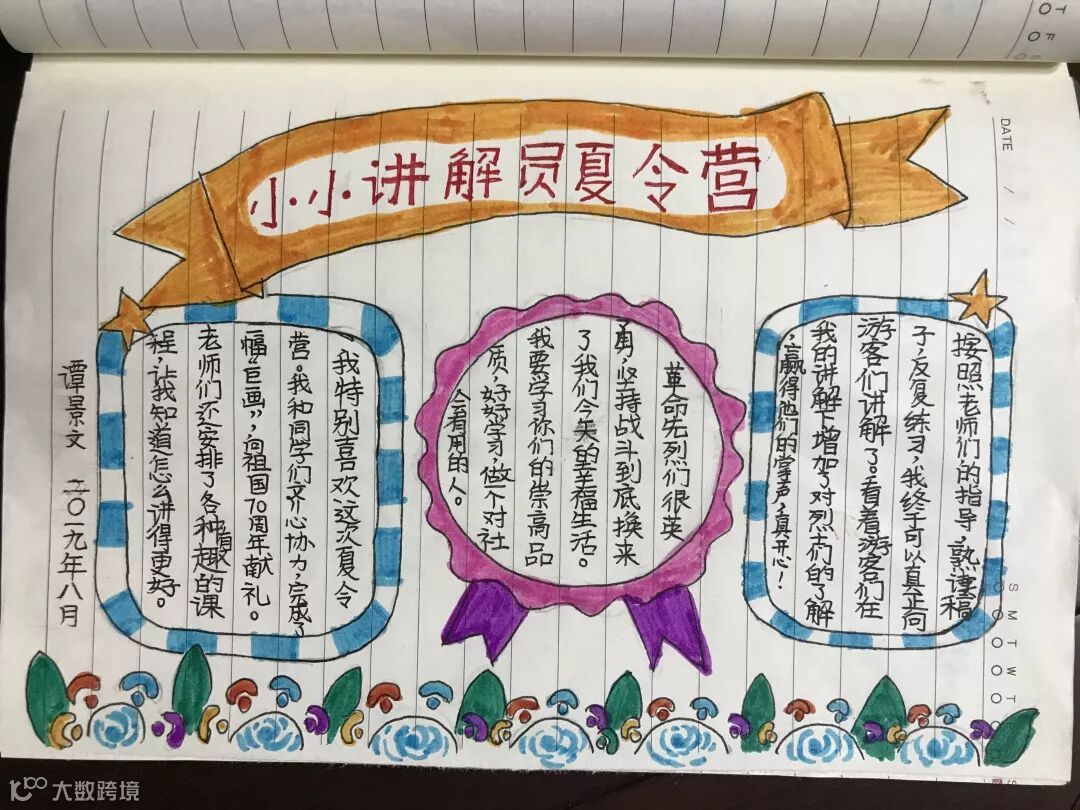 小小讲解员夏令营
按照老师们的指导,熟读稿
子,反复练习,我终于可以真正向
游客们讲解了。看着游客们在
我的讲解下增加了对烈士们的了解
,赢得他们的掌声,真开心!
革命先烈们很英
勇,坚持战斗到底换来
了我们今天的幸福生活。
我要学习你们的崇高品
质,好好学习,做一个对社
会有用的人。
我特别喜欢这次夏令
营。我和同学们齐心协力,完成了一
幅“巨画”,向祖国70周年献礼。
老师们还安排了各种有趣的课
程,让我知道怎么讲得更好。
谭景文 二〇一九年八月
DATE / /
S M T W T
大数跨境